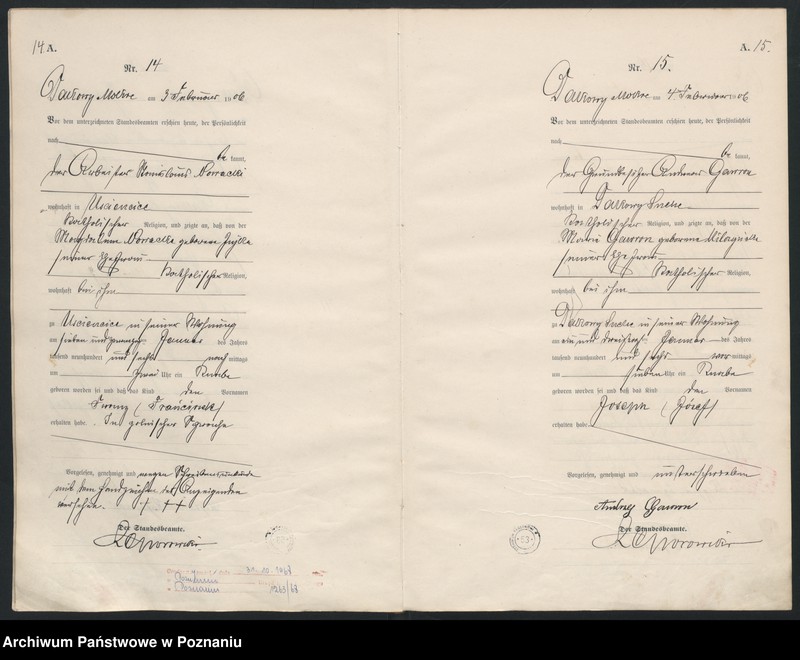 14 A.
Nr. 14
Dakowy Mokre am 3 Februar 1906
Vor dem unterzeichneten Standesbeamten erschien heute, der Persönlichkeit
nach
be kannt,
der Arbeiter Stanislaus
wohnhaft in Usciencice
Katholischer Religion, und zeigte an, daß von der
Magdalena geborenen
seiner Ehefrau
Katholischer Religion,
wohnhaft bei ihm
zu Usciencice in seiner Wohnung
am sieben und zwanzigsten Januar des Jahres
tausend neunhundert und sechs nachmittags
um zwei Uhr ein Knabe
geboren worden sei und daß das Kind den Vornamen
Franz (Franciszek)
erhalten habe. In polnischer Sprache
Vorgelesen, genehmigt und wegen Schreibensunkunde
mit dem Handzeichen des Anzeigenden
versehen. + + +
Der Standesbeamte.
31.10.1968
1263/68
A. 15.
Nr. 15.
Dakowy Mokre am 4 Februar 1906
Vor dem unterzeichneten Standesbeamten erschien heute, der Persönlichkeit
nach
be kannt,
der Grundbesitzer Andreas Gawron
wohnhaft in Dakowy Suche
Katholischer Religion, und zeigte an, daß von der
Maria Gawron geborene
seiner Ehefrau
Katholischer Religion,
wohnhaft bei ihm
zu Dakowy Suche in seiner Wohnung
am ein und dreißigsten Januar des Jahres
tausend neunhundert und sechs vormittags
um sieben Uhr ein Knabe
geboren worden sei und daß das Kind den Vornamen
Joseph (Józef)
erhalten habe.
Vorgelesen, genehmigt und unterschrieben
Andrzej Gawron
Der Standesbeamte.
Archiwum Państwowe w Poznaniu